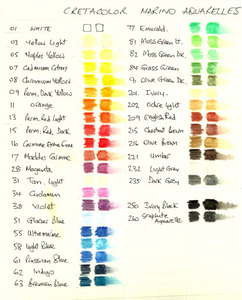 CRETACOLOR MARINO AQUARELLES
01 WHITE
03 Yellow Light
05 Naples Yellow
07 Cadmium Citron
08 Chromium Yellow
09 Perm. Dark Yellow
11 Orange
13 Perm. Red Light
15 Perm. Red Dark
16 Carmine Extra Fine
17 Madder Carmine
28 Magenta
31 Tan. Light
34 Cyclamen
38 Violet
51 Glacier Blue
55 Ultramarine
58 Light Blue
61 Prussian Blue
62 Indigo
63 Bremen Blue
77 Emerald.
81 Moss Green Lt.
82 Moss Green Dk.
84 Grass Green
91 Olive Green Dk
201 Ivory.
202 Ochre Light
209 English Red
215 Chestnut Brown
216 Olive Brown
221 Umber
232 Light Grey
235 Dark Grey
250 Ivory Black
260 Graphite Aquarelle